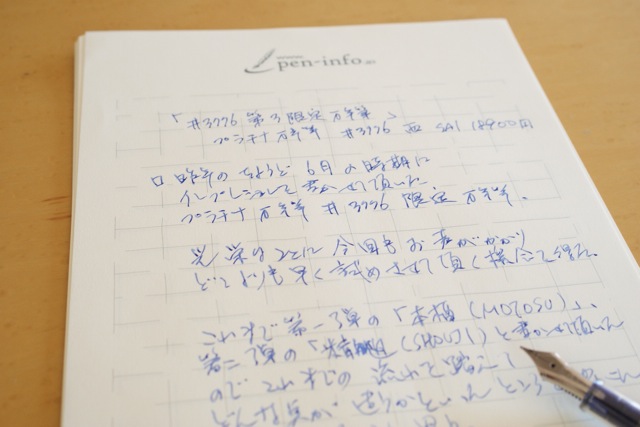 pen-info.jp
「#3776 第3限定万年筆」
プラチナ万年筆 #3776 西 SAI
□ 昨年のちょうど6月の時期に
インプレッションを書かせて頂いた
プラチナ万年筆 #3776 限定万年筆、
光栄なことに今回もお声がかかり
どこよりも早く試めさせて頂く機会を得た。
これまで第一弾の「本栖(MOTOSU)」、
第二弾の「(SHOUJI)と書かせて頂いた
のでこれまでの流れを踏え
どんな点が